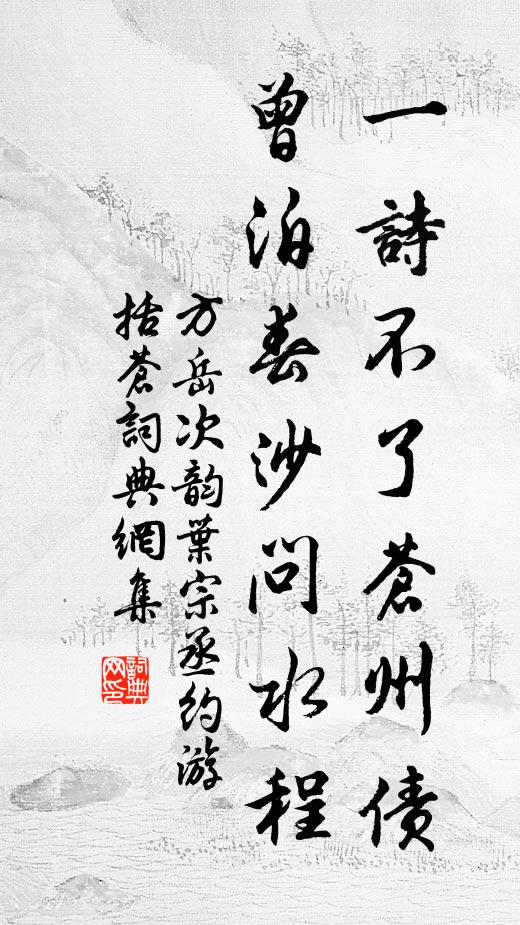 一詩不了蒼州債
曾泊春沙問水程
方岳次韵葉宗丞約游
括蒼詞典網集
詞典網印